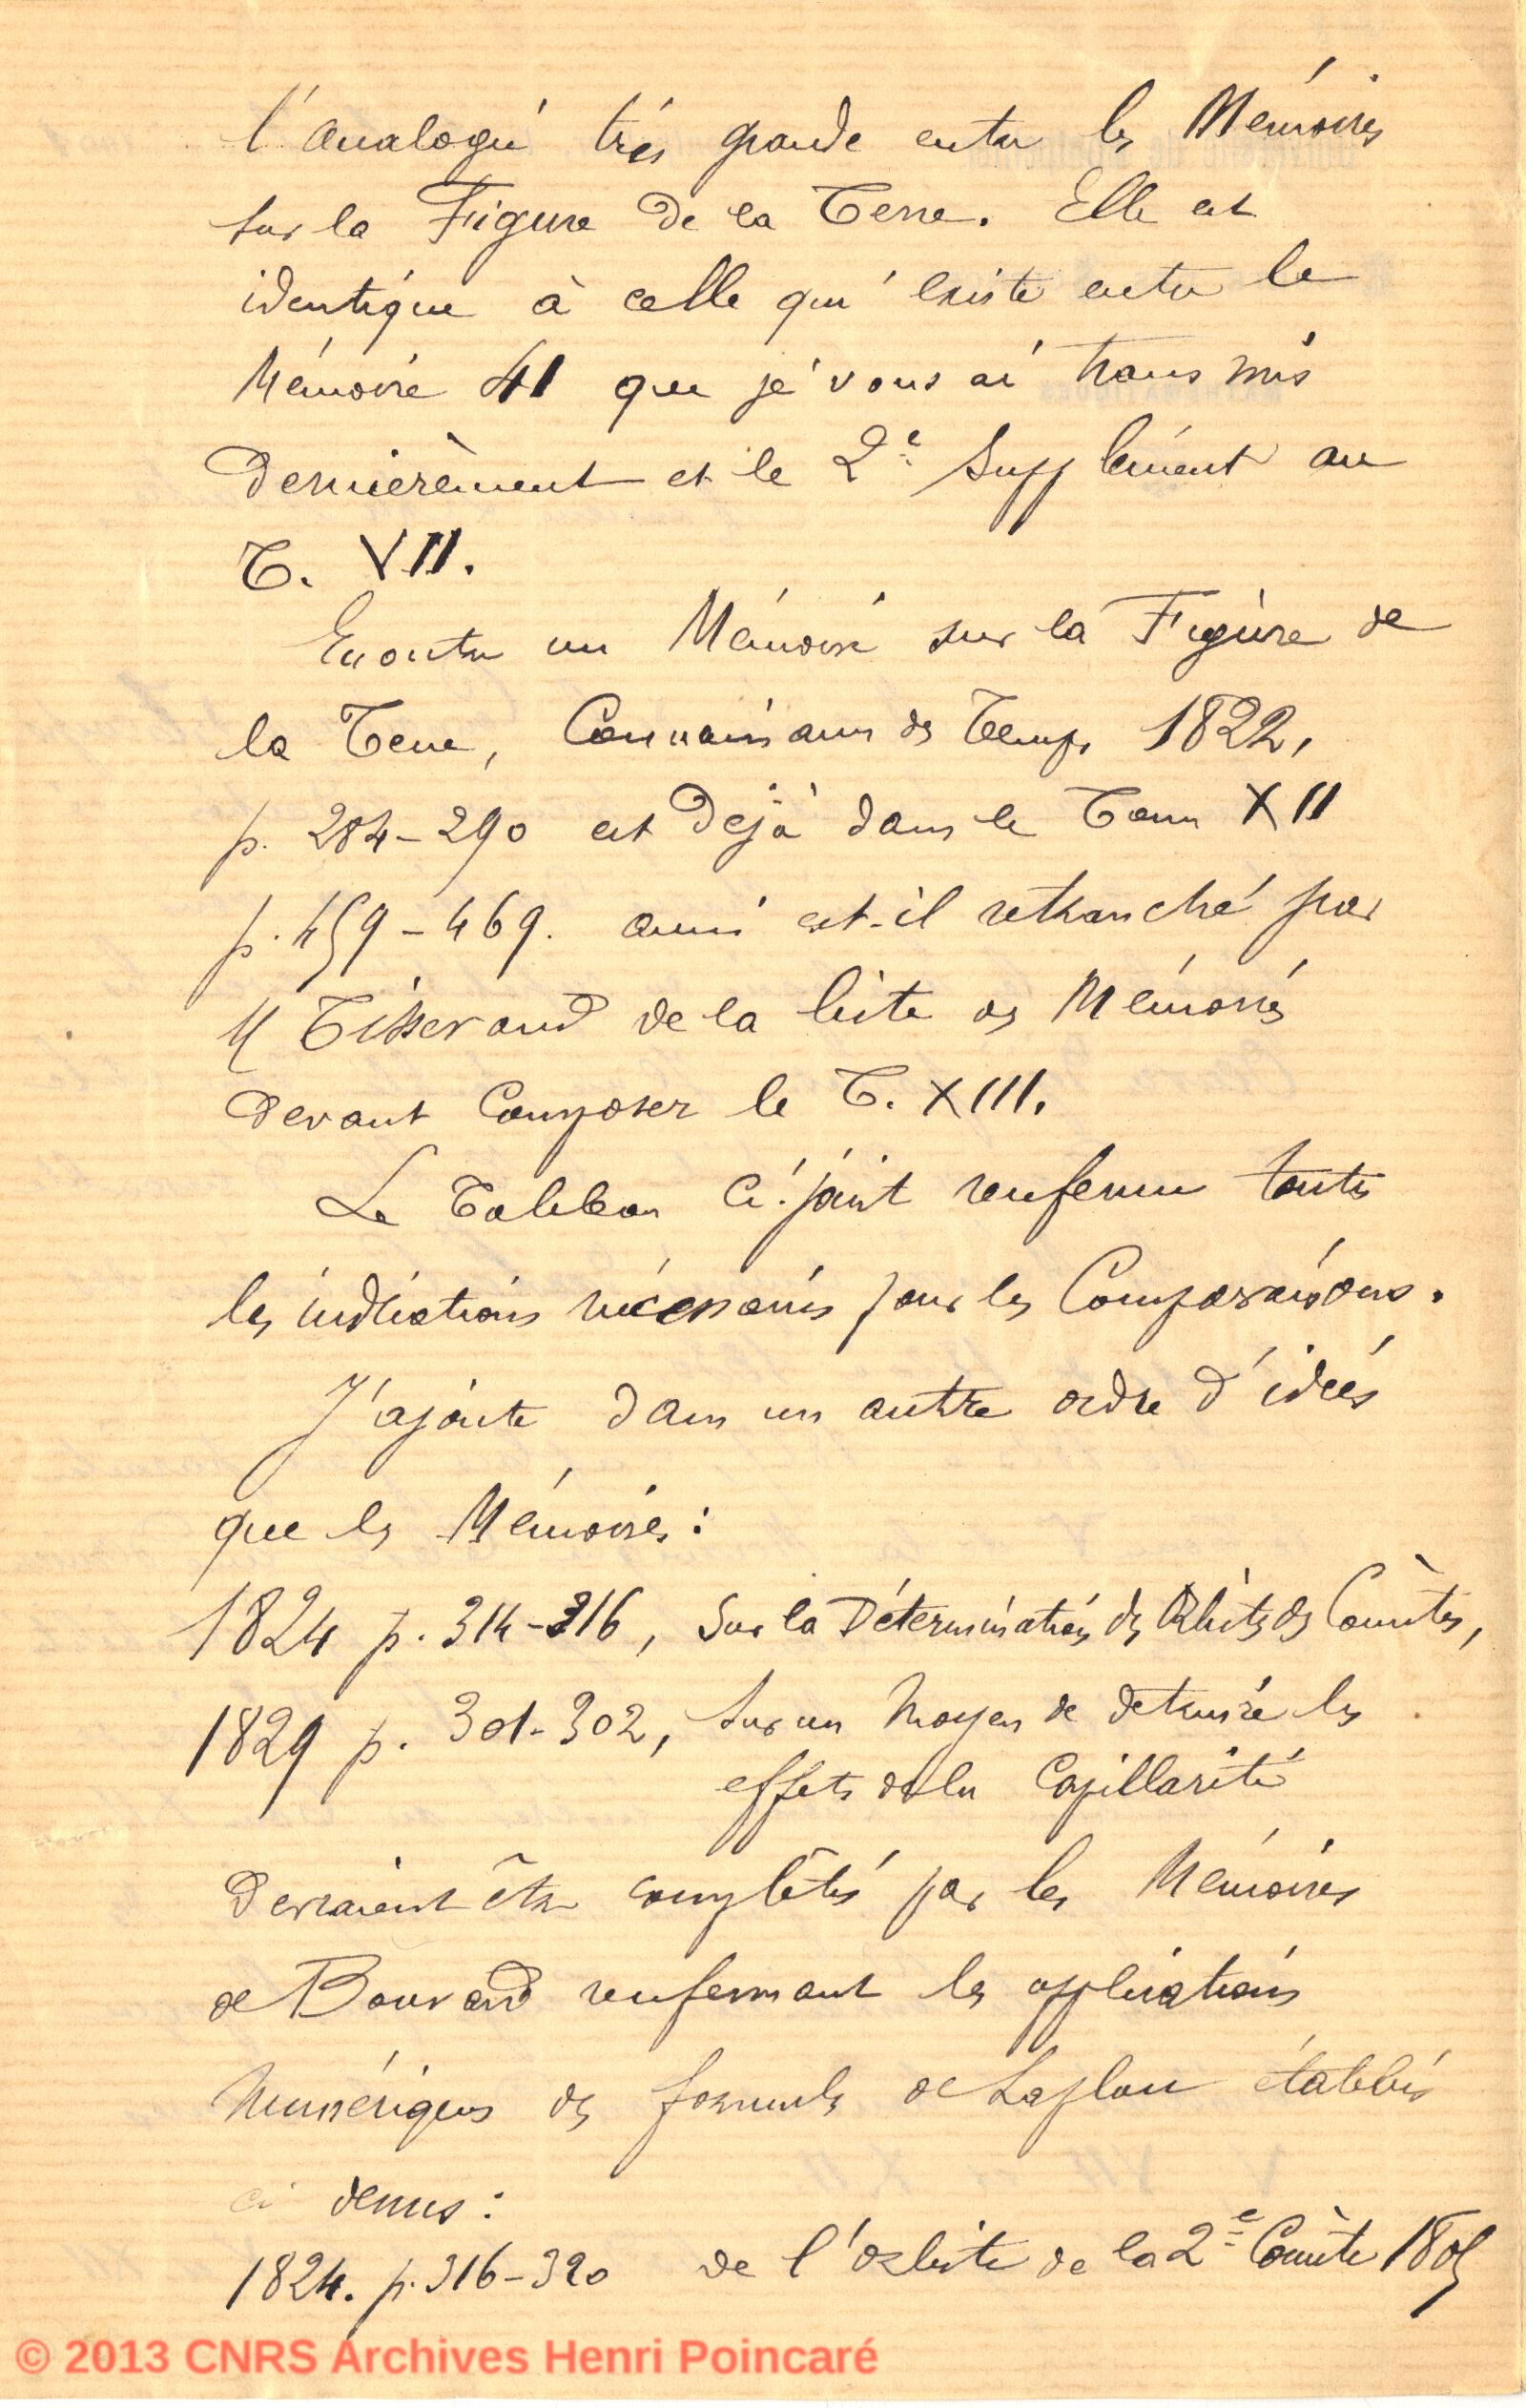 l'analogie très grande entre les Mémoires
sur la Figure de la Terre. Elle est
identique à celle qui existe entre le
Mémoire 41 que je vous ai transmis
dernièrement et le 2e Supplément au
T. VII.
En outre un Mémoire sur la Figure de
la Terre, Connaissance des Temps 1822,
p. 284-290 est déjà dans le Tome XII
p. 459-469. aussi est-il retranché par
M Tisserand de la liste des Mémoires
devant composer le T. XIII.
Le Tableau ci-joint renferme toutes
les indications nécessaires pour les Comparaisons.
J'ajoute dans un autre ordre d'idées
que les Mémoires:
1824 p. 314-316, Sur la Détermination des Orbites des Comètes,
1829 p. 301-302, Sur un moyen de détruire les
effets de la Capillarité
devraient être complétés par les Mémoires
de Bouvard renfermant les applications
numériques des formules de Laplace établies
ci dessus:
1824. p. 316-320 de l'orbite de la 2e Comète 1805
© 2013 CNRS Archives Henri Poincaré